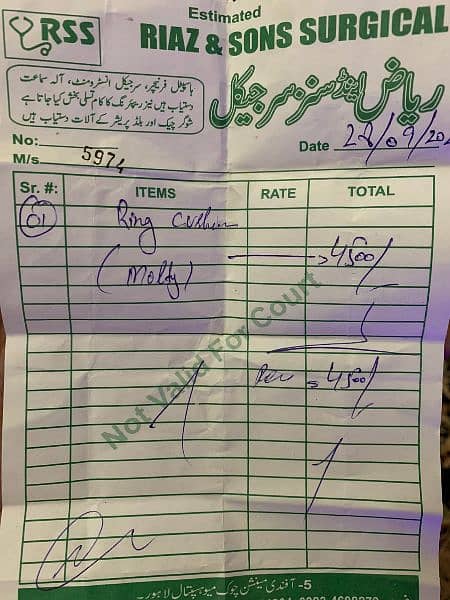 Estimated
RSS RIAZ & SONS SURGICAL
ریاض اینڈ سنز سرجیکل
ہاسپٹل فرنیچر، سرجیکل انسٹرومنٹ، آلہ سماعت
دستیاب ہیں نیز ریپئرنگ کا کام تسلی بخش کیا جاتا ہے
شوگر چیک اور بلڈ پریشر کے آلات دستیاب ہیں
No: 5974
Date 28/09/20
M/s
Sr. #: ITEMS RATE TOTAL
01 Ring cushion
(Molty) 4500/
Not Valid For Court
4500/
5- آفندی مینشن چوک میو ہسپتال لاہور۔